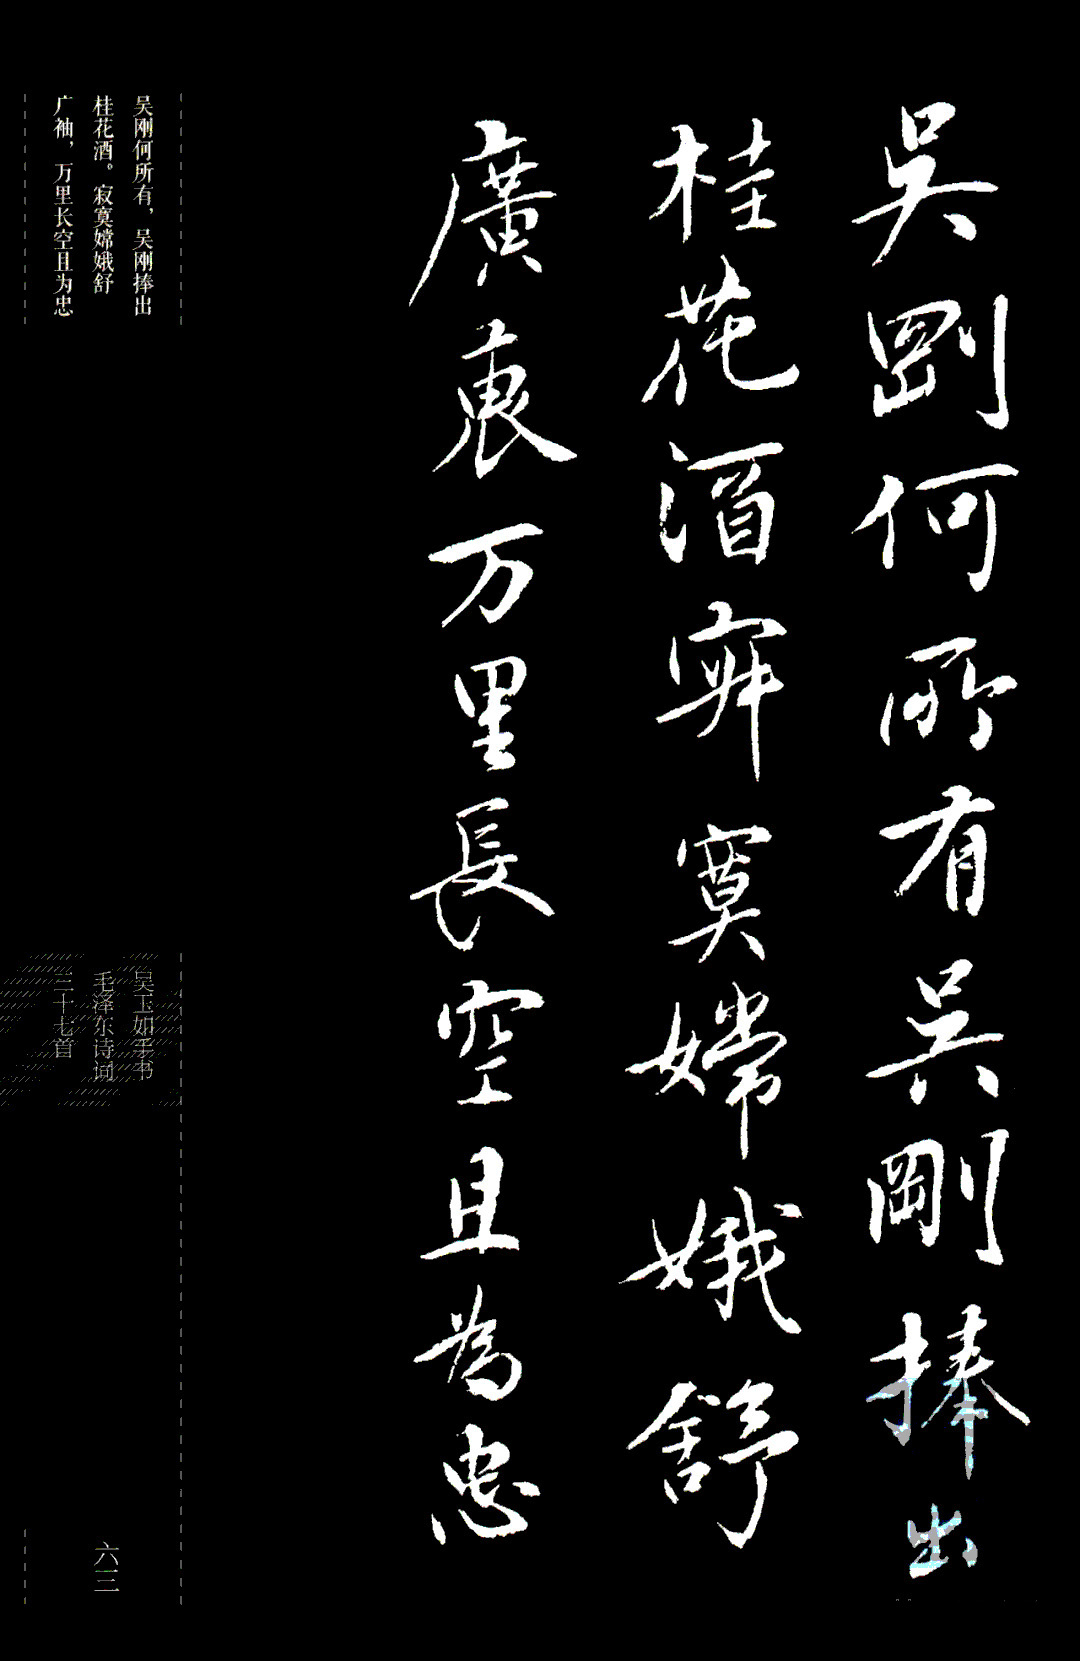 吳剛何所有吳剛捧出
桂花酒寂寞嫦娥舒
廣袖万里長空且為忠
吴刚何所有，吴刚捧出
桂花酒。寂寞嫦娥舒
广袖，万里长空且为忠
吴玉如手书
毛泽东诗词
三十七首
六三